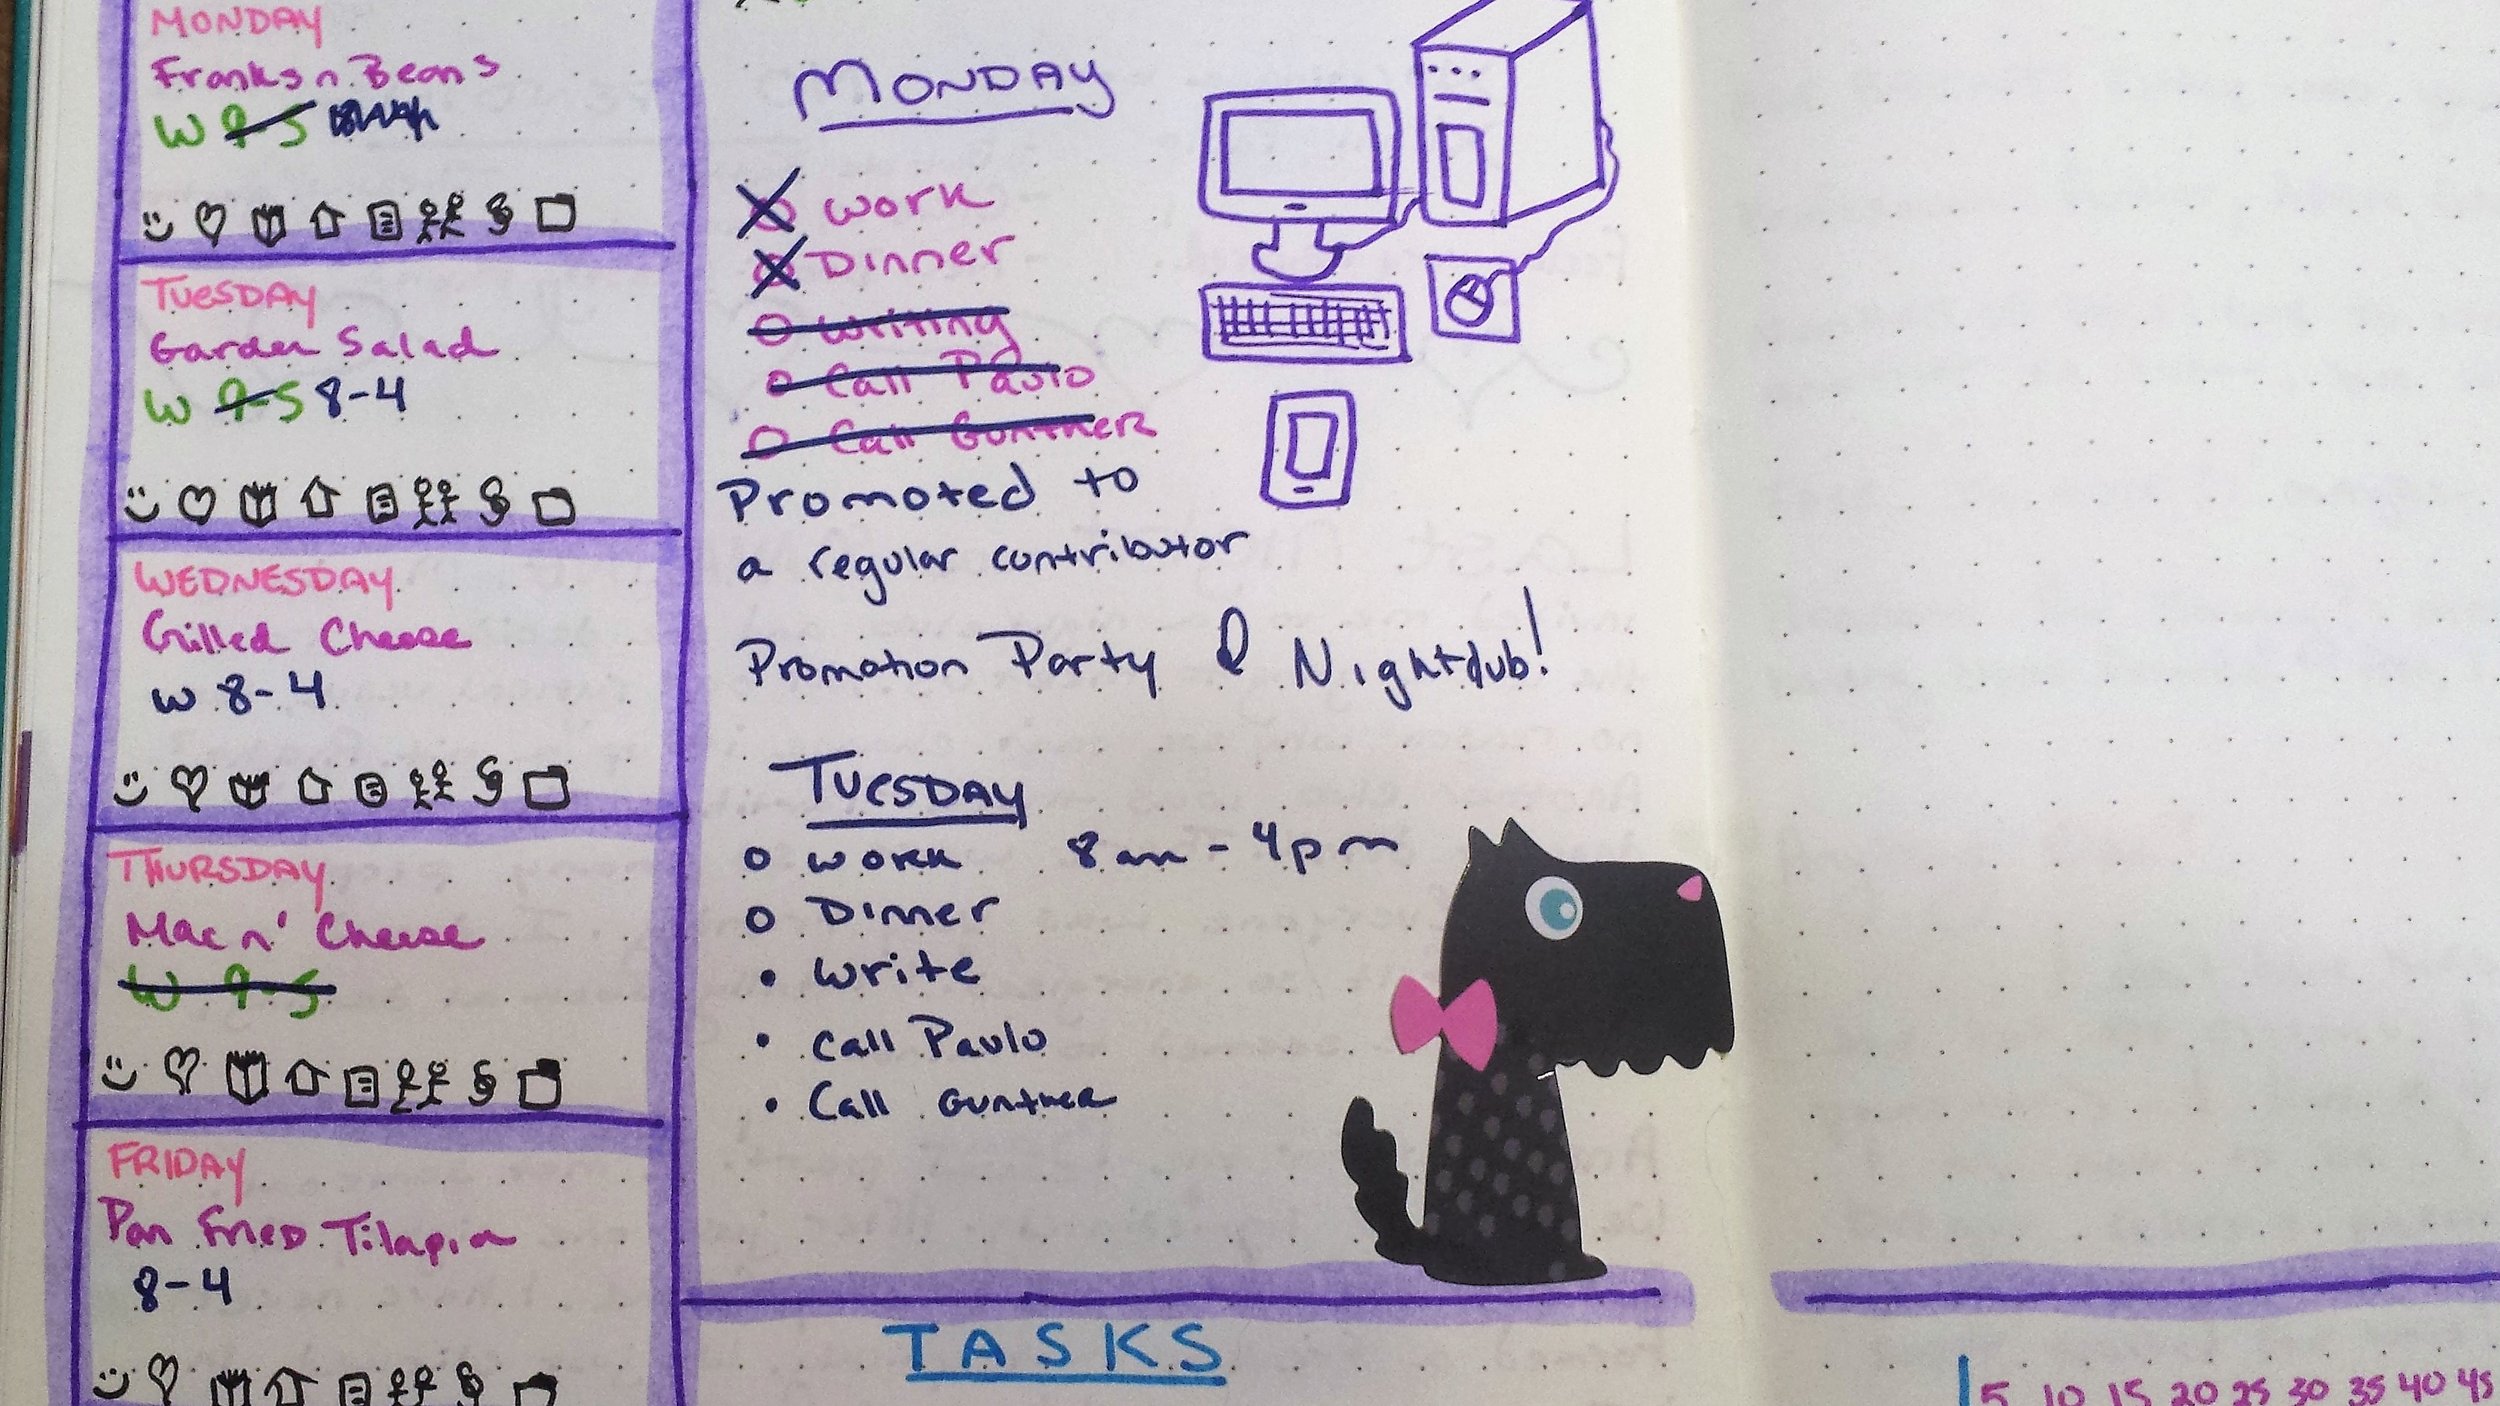 MONDAY
Franks n Beans
W 9-5
TUESDAY
Garden Salad
W 9-5 8-4
WEDNESDAY
Grilled Cheese
W 8-4
THURSDAY
Mac n' Cheese
W 9-5
FRIDAY
Pan Fried Tilapia
8-4
MONDAY
Work
Dinner
Writing
Call Paulo
Call Gunther
Promoted to
a regular contributor
Promotion Party @ Nightclub!
TUESDAY
Work 8am - 4pm
Dinner
Write
Call Paulo
Call Gunther
TASKS
5 10 15 20 25 30 35 40 45